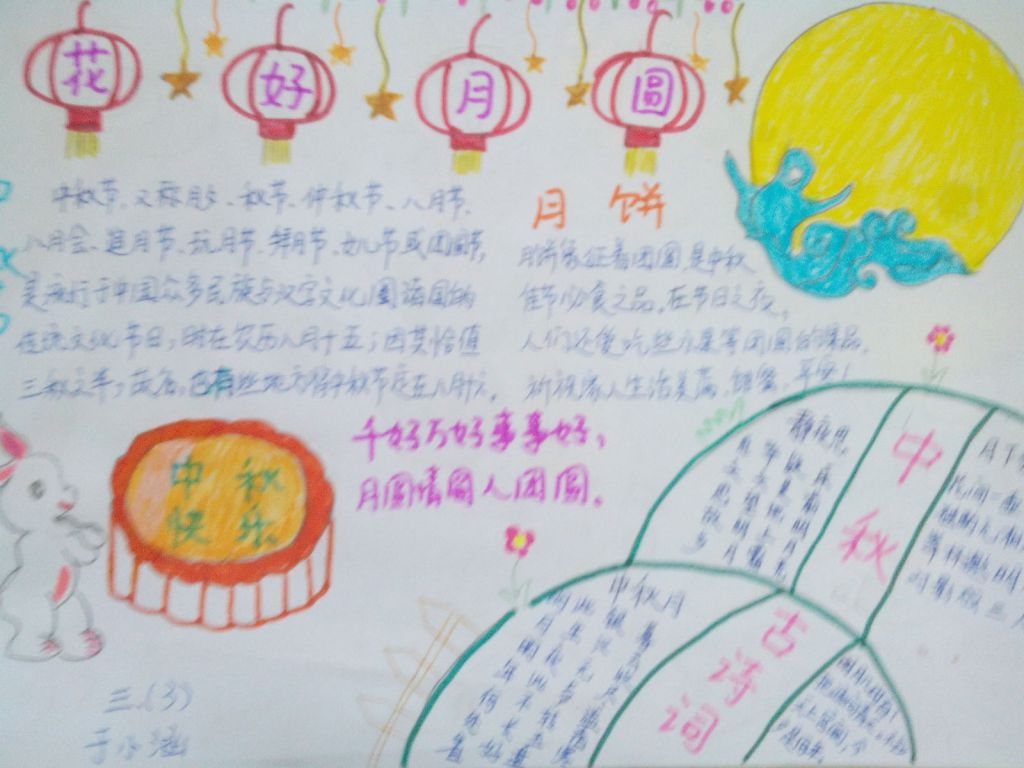 花好月圆
中秋节，又称月夕、秋节、仲秋节、八月节、
八月会、追月节、玩月节、拜月节、女儿节或团圆节，
是流行于中国众多民族与汉字文化圈诸国的
传统文化节日，时在农历八月十五；因其恰值
三秋之半，故名，也有些地方将中秋节定在八月十六。
月饼
月饼象征着团圆，是中秋
佳节必食之品。在节日之夜，
人们还爱吃些水果等团圆的果品，
祈祝家人生活美满、甜蜜、平安！
中秋
快乐
千好万好事事好，
月圆情圆人团圆。
静夜思
床前明月光，
疑是地上霜。
举头望明月，
低头思故乡
中秋
中秋月
暮云收尽溢清寒
银汉无声转玉盘
此生此夜不长好
明月明年何处看
古诗词
三.(3)
于小涵